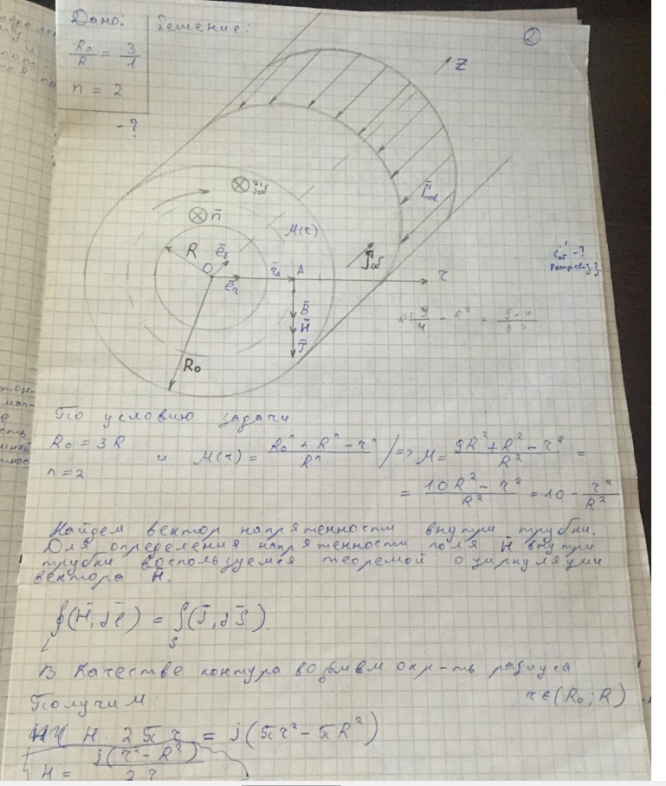 Дано:
Решение:
2
R₀/R = 3/1
n = 2
- ?
z
j'об
n̄
M(r)
R
O
ēr
r₀
A
r
B̄
H̄
J̄
R₀
По условию задачи
R₀ = 3R
n = 2
и M(r) = (R₀ⁿ + Rⁿ - rⁿ)/Rⁿ /=> M = (9R² + R² - r²)/R² =
= (10R² - r²)/R² = 10 - r²/R²
Найдем вектор напряженности внутри трубки.
Для определения напряженности поля H̄ внутри
трубки воспользуемся теоремой о циркуляции
вектора H̄.
∮(H̄, dl̄) = ∫(j̄, dS̄).
L S
В качестве контура возьмем окр-ть радиуса
r∈(R₀; R)
Получим:
H · 2πr = j(πr² - πR²)
H = j(r² - R²)/2r